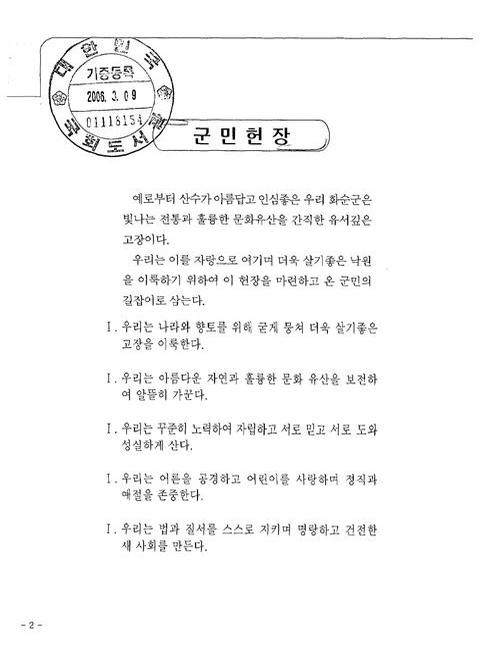 대한민국
기증등록
2006. 3. 09
01118154
국회도서관
군민헌장
예로부터 산수가 아름답고 인심좋은 우리 화순군은
빛나는 전통과 훌륭한 문화유산을 간직한 유서깊은
고장이다.
우리는 이를 자랑으로 여기며 더욱 살기좋은 낙원
을 이룩하기 위하여 이 헌장을 마련하고 온 군민의
길잡이로 삼는다.
I. 우리는 나라와 향토를 위해 굳게 뭉쳐 더욱 살기좋은
고장을 이룩한다.
I. 우리는 아름다운 자연과 훌륭한 문화 유산을 보전하
여 알뜰히 가꾼다.
I. 우리는 꾸준히 노력하여 자립하고 서로 믿고 서로 도와
성실하게 산다.
I. 우리는 어른을 공경하고 어린이를 사랑하며 정직과
예절을 존중한다.
I. 우리는 법과 질서를 스스로 지키며 명랑하고 건전한
새 사회를 만든다.
- 2 -